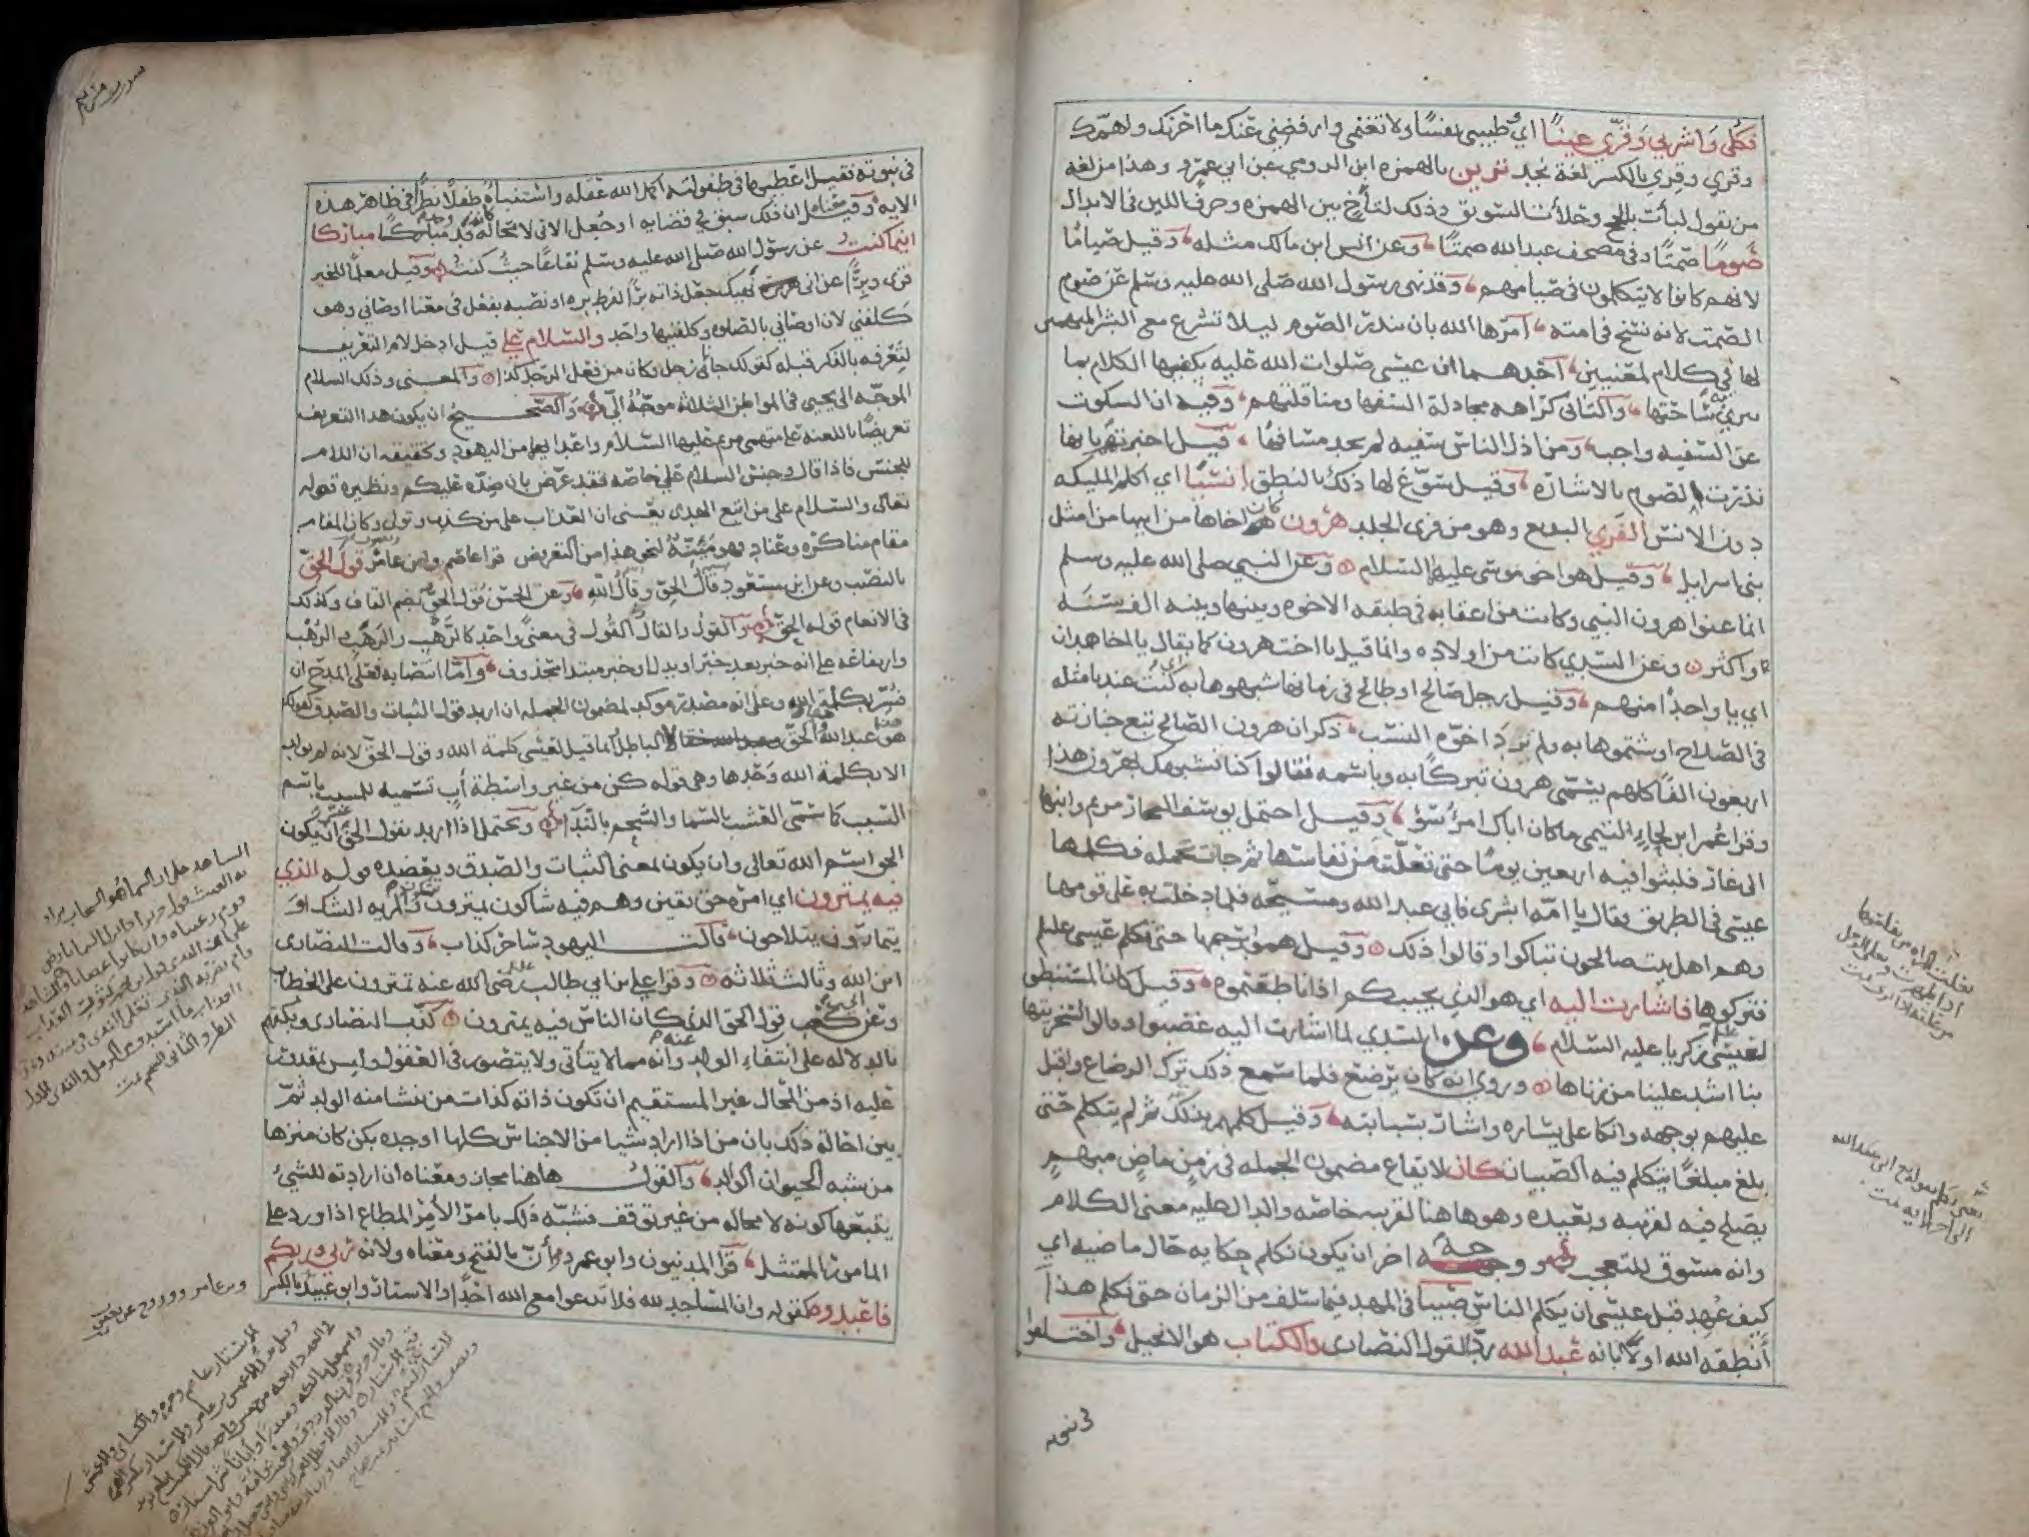 فكلي واشربي وقري عينا اي وطيبي نفسا ولا تغتمي وارفضي عنك ما احزنك واهمك
وقري وقري بالكسر لغة نجد ترين بالهمزه ابن الرومي عن ابي عمرو وهذا من لغه
من يقول لبأت بالحج وحلأت السويق وذلك لتأخ بين الهمزه وحرف اللين في الابدال
صوما صمتا وفي مصحف عبد الله صمتا وعن انس ابن مالك مثله وقيل صياما
لانهم كانوا لا يتكلمون في صيامهم وقد نهى رسول الله صلى الله عليه وسلم عن صوم
الصمت لانه نسخ في امته امرها الله بان تنذر الصوم ليلا تشرع مع البشر المتهمين
لها في كلام لمعنيين احدهما ان عيسى صلوات الله عليه يكفيها الكلام بما
يبري به ساحتها والثاني كراهه مجادلة السفها ومناقلتهم وفيه ان السكوت
عن السفيه واجب ومن اذل الناس سفيه لم يجد مسافها قيل اخبرتهم بانها
نذرت الصوم بالاشاره وقيل سوغ لها ذلك بالنطق انسيا اي اكلم المليكه
دون الانس الفري البديع وهو من فري الجلد هرون كان اخاها من ابيها من امثل
بني اسرايل وقيل هو اخو موسى عليه السلام وعن النبي صلى الله عليه وسلم
انما عنوا هرون النبي وكانت من اعقابه في طبقه الاخوه وبينها وبينه الف سنه
واكثر وعن السدي كانت من اولاده وانما قيل يا اخت هرون كما يقال يا اخا همدان
اي يا واحدا منهم وقيل رجل صالح او طالح في زمانها شبهوها به اي كنت عندنا مثله
في الصلاح او شتموها به ولم يرد اخوة النسب ذكر ان هرون الصالح تبع جنازته
اربعون الفا كلهم يسمى هرون تبركا به وباسمه فقالوا كنا نشبهك بهرون هذا
وقرا عمر ابن لجاء التيمي ما كان اباك امرؤ سوء وقيل احتمل يوسف النجار مريم وابنها
الى غار فلبثوا فيه اربعين يوما حتى تعلت من نفاسها ثم جات تحمله فكلمها
عيسى في الطريق فقال يا امه ابشري فاني عبد الله ومسيحه فلما دخلت به على قومها
وهم اهل بيت صالحون تباكوا وقالوا ذلك وقيل هموا برجمها حتى تكلم عيسى عليه
فتركوها فاشارت اليه اي هو الذي يجيبكم اذا ناطقتموه وقيل كان المستنطق
لعيسى زكريا عليه السلام وعن السدي لما اشارت اليه غضبوا وقالوا لسخريتها
بنا اشد علينا من زناها وروي انه كان يرضع فلما سمع ذلك ترك الرضاع واقبل
عليهم بوجهه واتكا على يساره واشار بسبابته وقيل كلمهم بذلك ثم لم يتكلم حتى
بلغ مبلغا يتكلم فيه الصبيان كان لايقاع مضمون الجمله في زمن ماض مبهم
يصلح فيه لقريبه وبعيده وهو هاهنا لقريبه خاصه والدال عليه معنى الكلام
وانه مسوق للتعجب ووجه اخر ان يكون نكلم حكايه حال ماضيه اي
كيف عهد قبل عيسى ان يكلم الناس صبيا في المهد فيما سلف من الزمان حتى نكلم هذا
أنطقه الله اولا بانه عبد الله ردا لقول النصارى والكتاب هو الانجيل واختلفوا
في نبوته
سورة مريم
في نبوته فقيل اعطيها في طفوليته اكمل الله عقله واستنبأه طفلا نظرا في ظاهر هذه
الايه وقيل معناه ان ذلك سبق في قضايه او جعل الاتي لا محالة كانه قد وجد مباركا
اينما كنت عن رسول الله صلى الله عليه وسلم نفاعا حيث كنت وقيل معلما للخير
قرى وبرا عن ابي نهيك جعل ذاته برا لفرط بره او نصبه بفعل في معنى اوصاني وهو
كلفني لان اوصاني بالصلوة وكلفنيها واحد والسلام علي قيل ادخل لام التعريف
لتعرفه بالذكر قبله كقولك جانا رجل وكان من فعل الرجل كذا والمعنى وذلك السلام
الموجه الى يحيى في المواطن الثلاثه موجه الي والصحيح ان يكون هذا التعريف
تعريضا باللعنه على متهمي مريم عليها السلام واعدايها من اليهود وتحقيقه ان اللام
للجنس فاذا قال وجنس السلام علي خاصه فقد عرض بان ضده عليكم ونظيره قوله
تعالى والسلام على من اتبع الهدى يعني ان العذاب على من كذب وتولى وكان المقام
مقام مناكره وعناد فهو مئنة لنحو هذا من التعريض قرا عاصم وابن عامر قول الحق
بالنصب وعن ابن مسعود قال الحق وقال الله وعن الحسن قول الحق بضم القاف وكذلك
في الانعام قوله الحق والقول والقال والقول في معنى واحد كالرهب والرهب والرهب
وارتفاعه على انه خبر بعد خبر او بدل او خبر مبتدا محذوف واما انتصابه فعلى المدح ان
فسر بكلمة الله وعلى انه مصدر موكد لمضمون الجمله ان اريد قول الثبات والصدق كقولك
هو عبد الله الحق لا الباطل انما قيل لعيسى كلمة الله وقول الحق لانه لم يولد
الا بكلمة الله وحدها وهي قوله كن من غير واسطة أب تسمية للمسبب باسم
السبب كما سمى العشب بالسما والشحم بالندا ويحتمل اذا اريد بقول الحق ان يكون
الحق اسم الله تعالى وان يكون بمعنى الثبات والصدق ويعضده قوله الذي
فيه يمترون اي امره حق يقين وهم فيه شاكون يمترون يشكون والمريه الشك او
يتمارون يتلاحون قالت اليهود ساحر كذاب وقالت النصارى
ابن الله وثالث ثلاثة وقرا علي ابن ابي طالب رضي الله عنه تمترون على الخطاب
وعن ابي كعب قول الحق الذي كان الناس فيه يمترون كذب النصارى وبكتهم
بالدلالة على انتفاء الولد عنه وانه مما لا يتأتى ولا يتصور في العقول وليس بمقدور
عليه اذ من المحال غير المستقيم ان تكون ذاته كذات من ينشا منه الولد ثم
بين احالة ذلك بان من اذا اراد شيا من الاجناس كلها اوجده بكن كان منزها
من شبه الحيوان الوالد والقول هاهنا مجاز ومعناه ان ارادته للشيء
يتبعها كونه لا محاله من غير توقف فشبه ذلك بامر الآمر المطاع اذا ورد على
المامور الممتثل قرا المدنيون وابو عمرو وأن بالفتح ومعناه ولانه ربي وربكم
فاعبدوه كقوله وان المساجد لله فلا تدعوا مع الله احدا والاستار وابو عبيد بالكسر